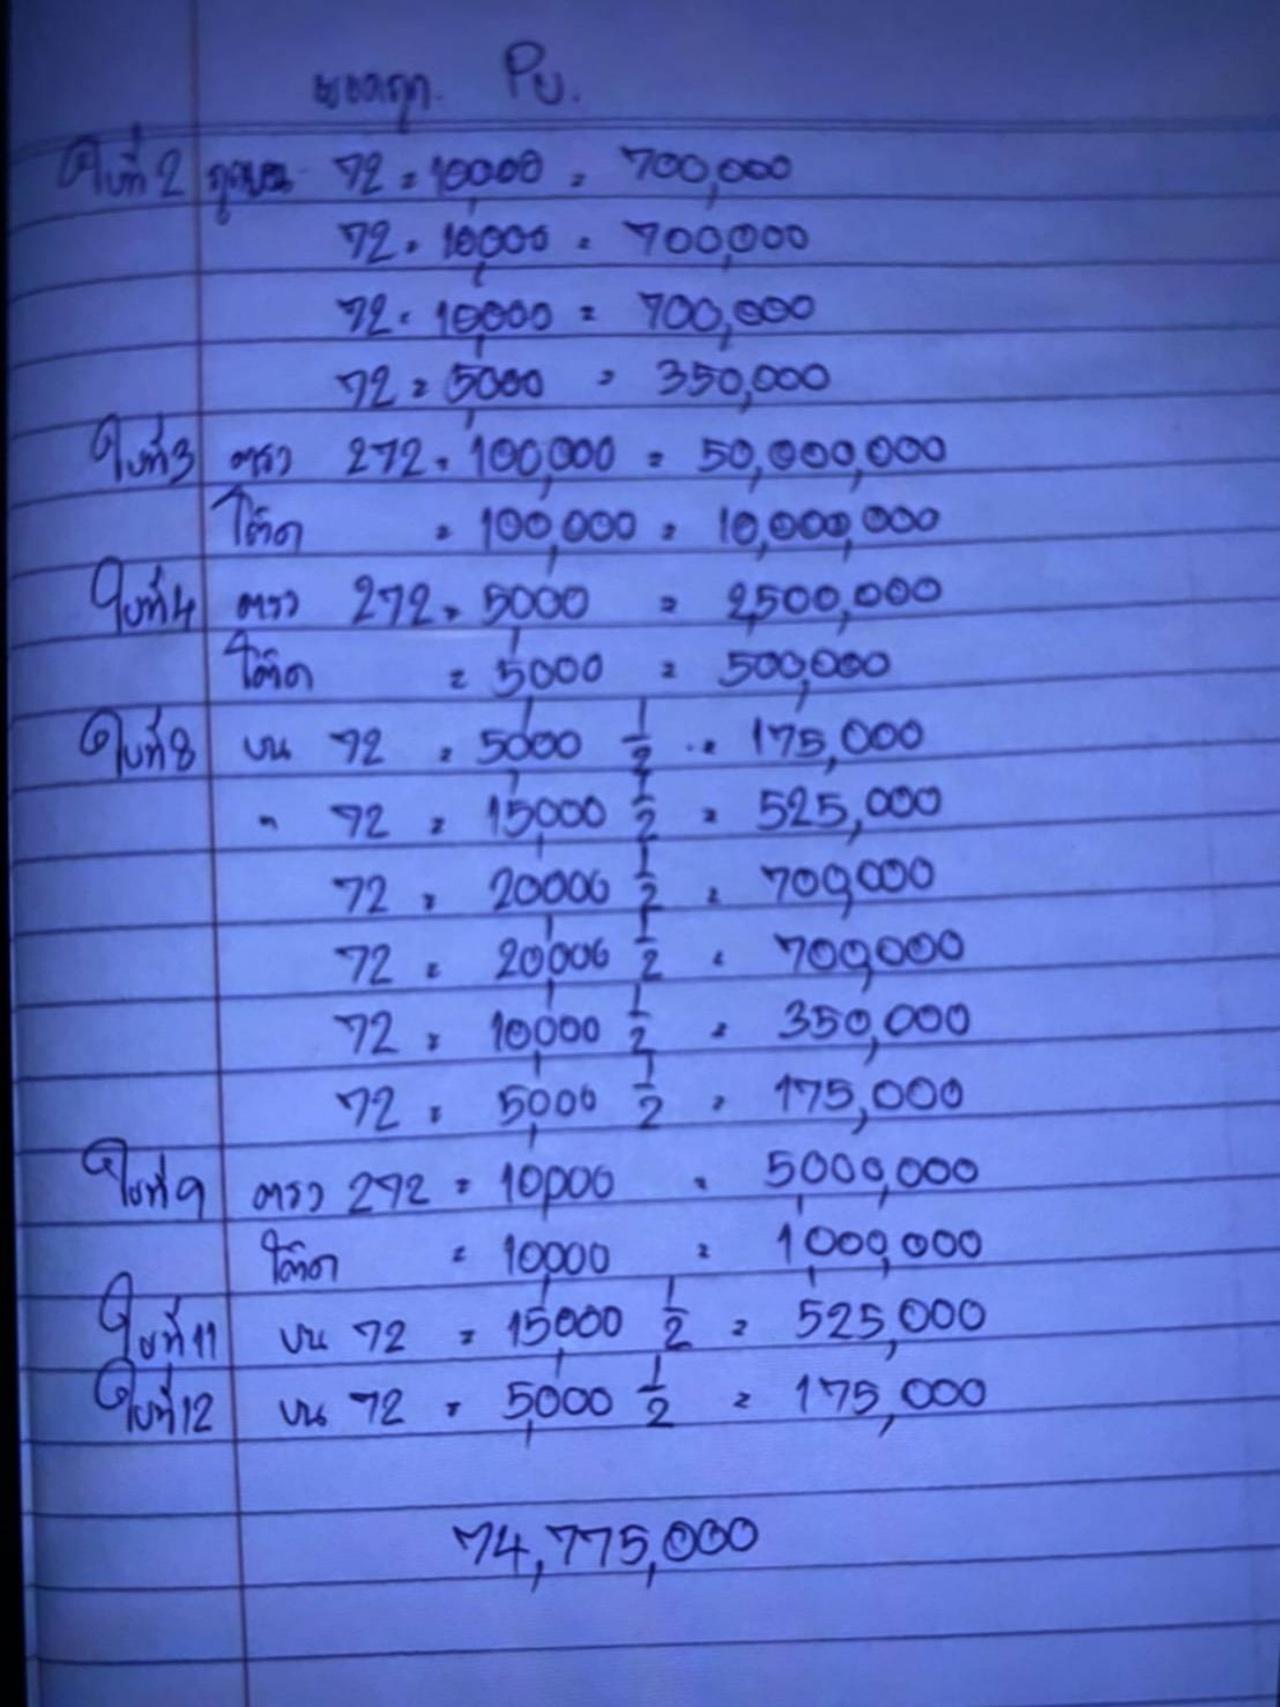 ยอดถูก. Pu.
ใบที่2 ถูกบน 72 = 10,000 = 700,000
72 = 10,000 = 700,000
72 = 10,000 = 700,000
72 = 5,000 = 350,000
ใบที่3 ตรง 272 = 100,000 = 50,000,000
โต๊ด = 100,000 = 10,000,000
ใบที่4 ตรง 272 = 5,000 = 2,500,000
โต๊ด = 5,000 = 500,000
ใบที่8 บน 72 = 5,000 1/2 = 175,000
" 72 = 15,000 1/2 = 525,000
72 = 20,000 1/2 = 700,000
72 = 20,000 1/2 = 700,000
72 = 10,000 1/2 = 350,000
72 = 5,000 1/2 = 175,000
ใบที่9 ตรง 272 = 10,000 = 5,000,000
โต๊ด = 10,000 = 1,000,000
ใบที่11 บน 72 = 15,000 1/2 = 525,000
ใบที่12 บน 72 = 5,000 1/2 = 175,000
74,775,000